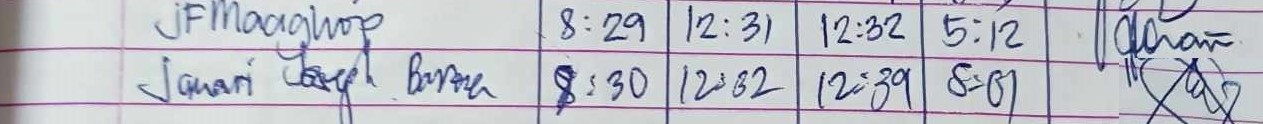 JFMaaghop 8:29 12:31 12:32 5:12
Joseph 8:30 12:32 12:39 5:01